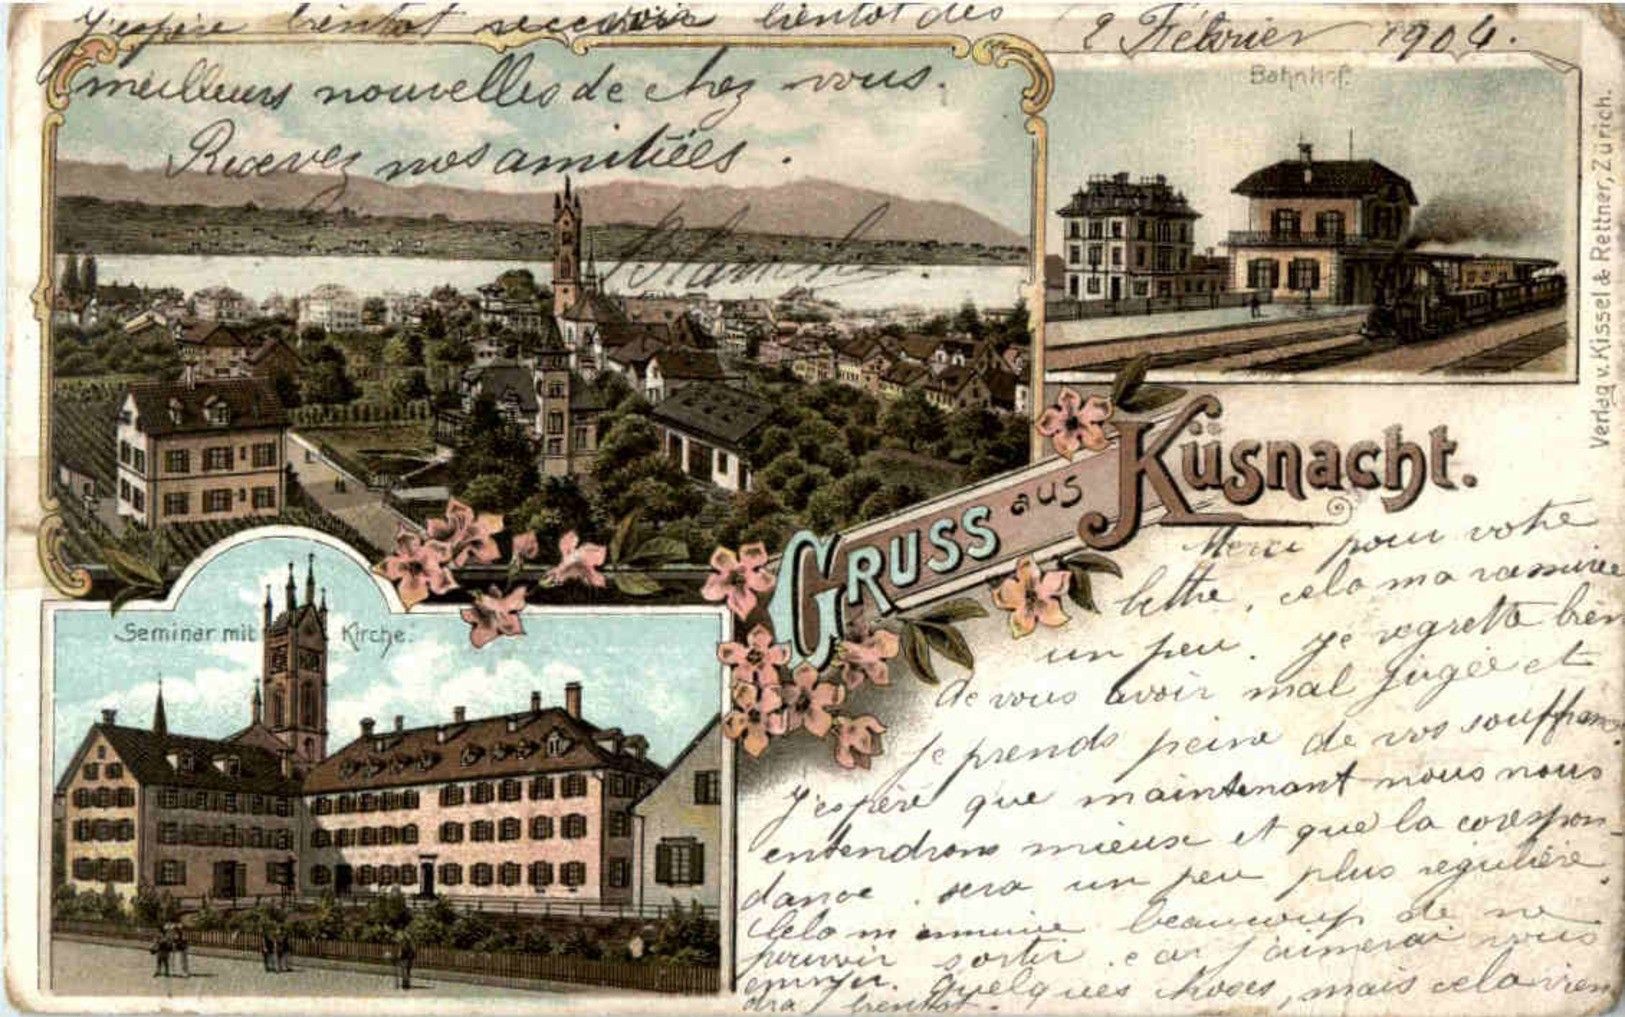 J'espère bientôt recevoir bientôt des
2 Février 1904.
meilleurs nouvelles de chez vous.
Recevez nos amitiées.
Blanche
Bahnhof.
Verlag v. Kissel & Rettner, Zürich.
Gruss aus Küsnacht.
Seminar mit Kirche.
Merci pour votre
lettre, cela ma rassurée
un peu. Je regrette bien
de vous avoir mal jugée et
je prends peine de vos souffrances.
J'espère que maintenant nous nous
entendrons mieux et que la correspon-
dance sera un peu plus régulière.
Cela m'ennuie beaucoup de ne
pouvoir sortir, car j'aimerai vous
envoyer quelques choses, mais cela vien
dra bientôt.